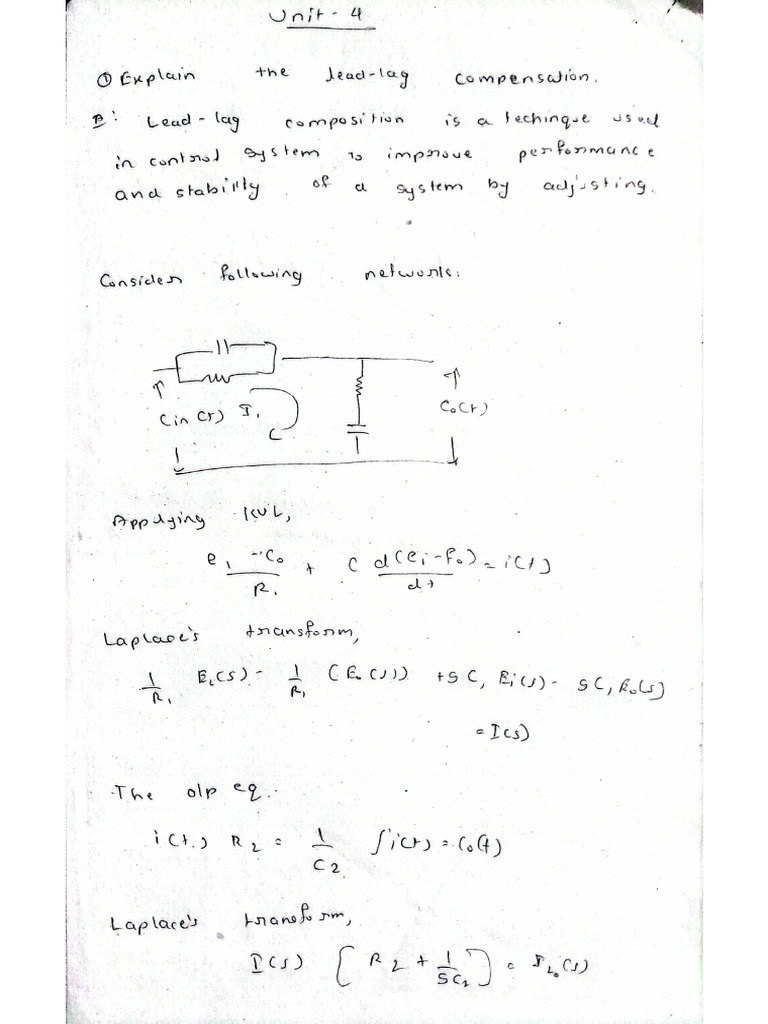 Unit - 4
① Explain the lead-lag compensation.
A: Lead - lag composition is a techinque used
in control system to improve performance
and stability of a system by adjusting.
Consider following network:
Cin(t) I, Co(t)
Applying KVL,
e₁ - Co / R₁ + C d(ei - eo) / dt = i(t)
Laplace's transform,
1/R₁ Ei(s) - 1/R₁ (Eo(s)) + SC₁ Ei(s) - SC₁ Eo(s)
= I(s)
The o/p eq.
i(t) R₂ = 1/C₂ ∫i(t) = Co(t)
Laplace's transform,
I(s) [R₂ + 1/SC₂] =